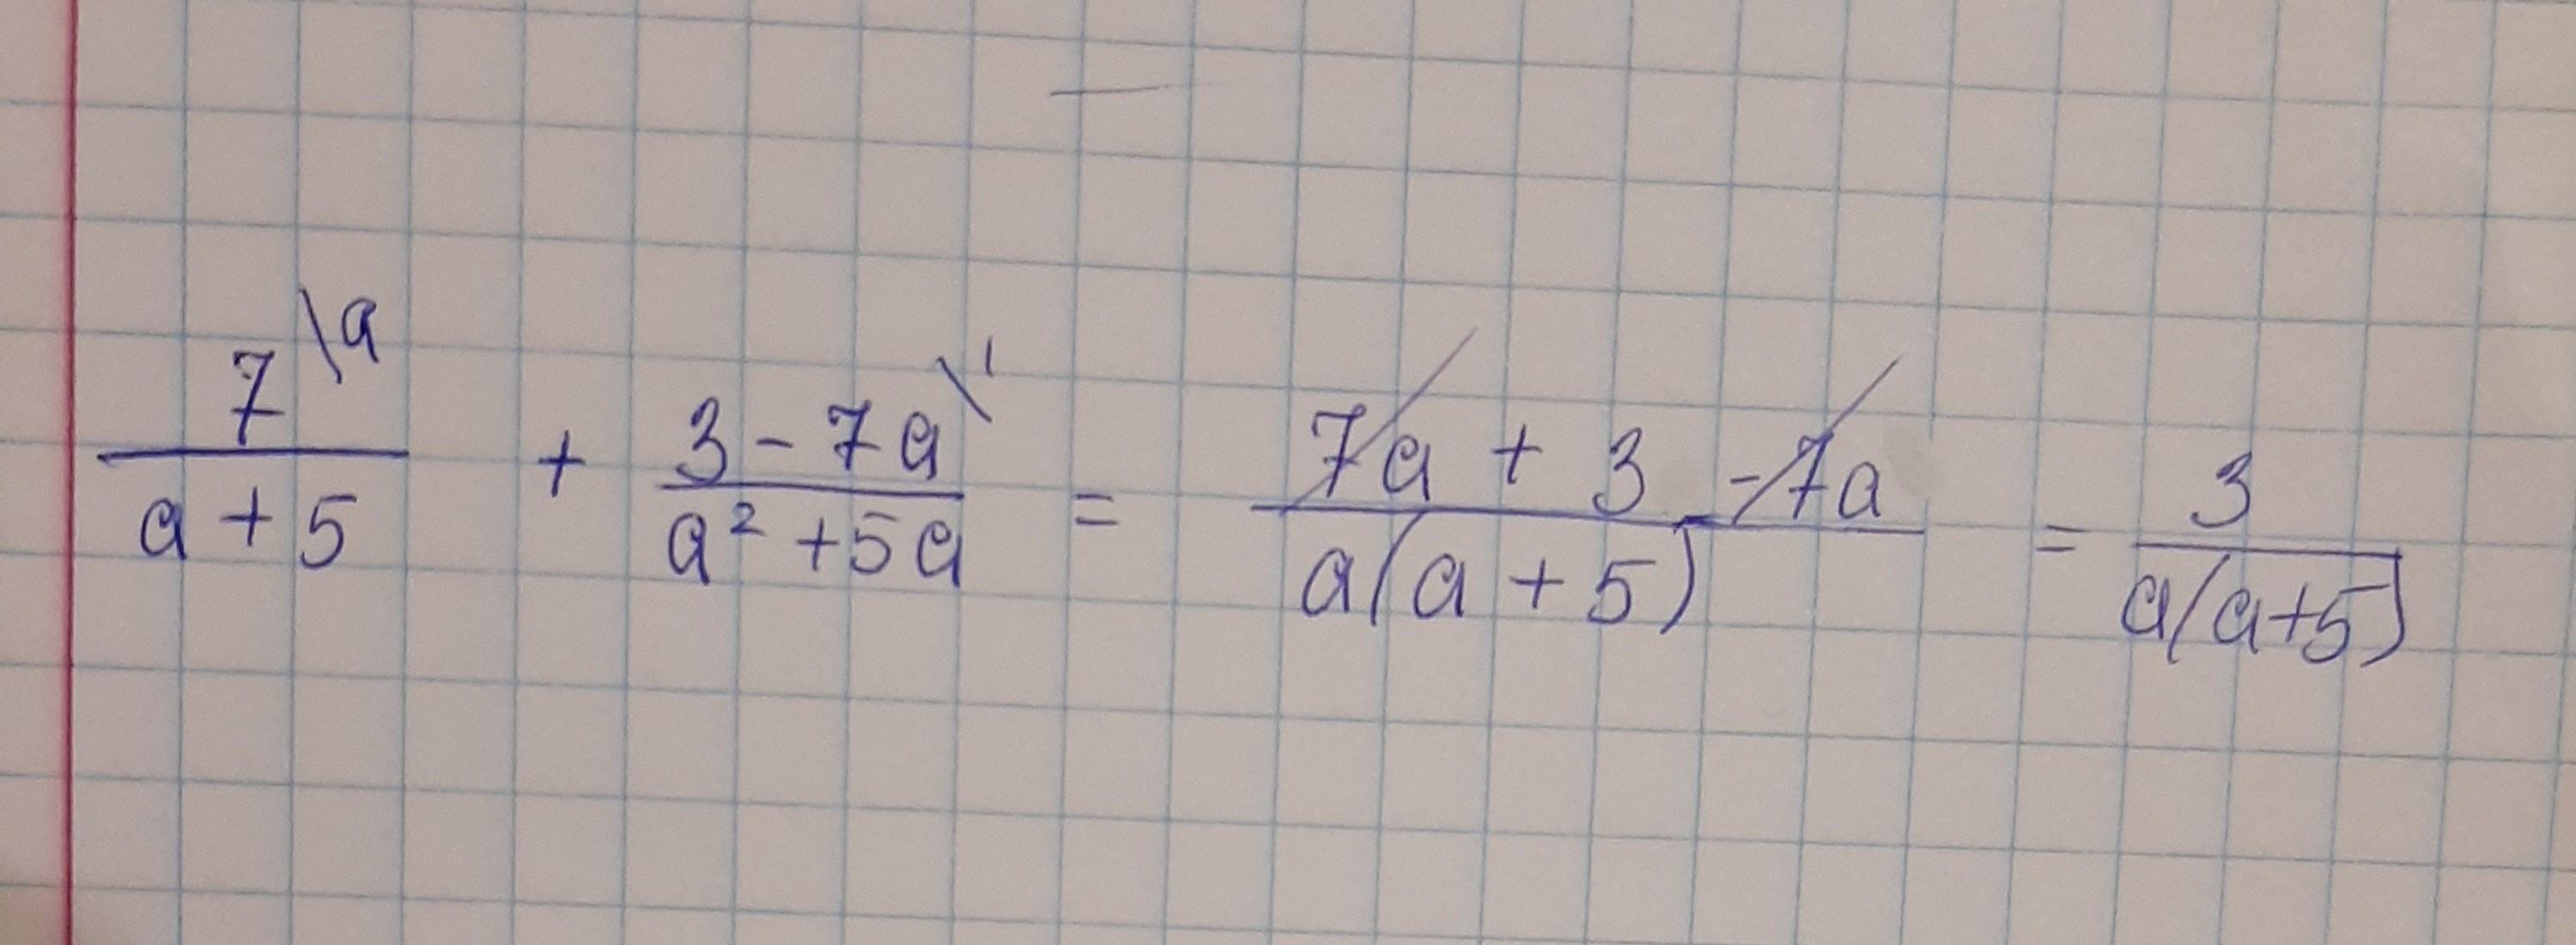 \frac{7^{\backslash a}}{a+5} + \frac{3-7a^{\backslash 1}}{a^2+5a} = \frac{7a+3-7a}{a(a+5)} = \frac{3}{a(a+5)}